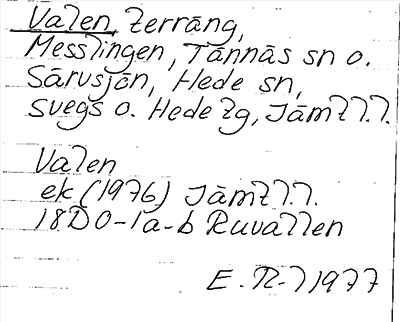 Valen, terräng,
Messlingen, Tännäs sn o.
Särvsjön, Hede sn,
Svegs o. Hede tg, Jämtl.l.
Valen
ek (1976) Jämtl.l.
18D 0-1a-b Ruvallen
E. R-l 1977